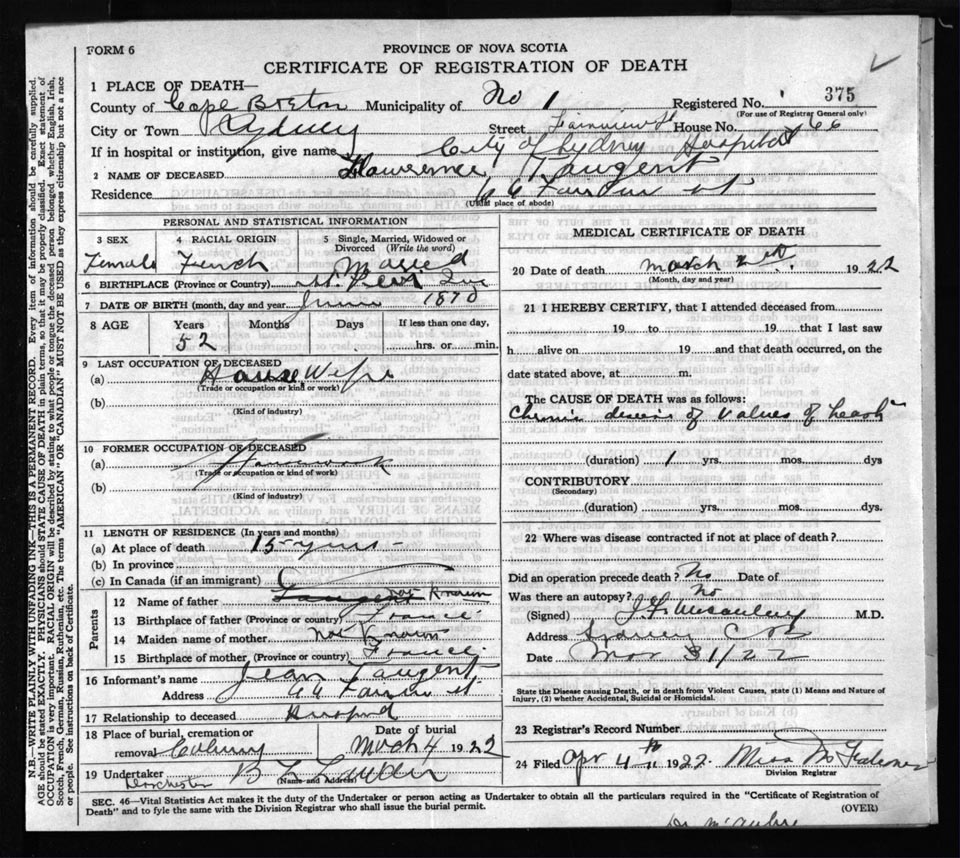 FORM 6
PROVINCE OF NOVA SCOTIA
CERTIFICATE OF REGISTRATION OF DEATH
1 PLACE OF DEATH—
County of Cape Breton Municipality of No 1 Registered No. 375
(For use of Registrar General only)
City or Town Sydney Street Fairview St House No. 66
If in hospital or institution, give name City of Sydney Hospital
2 NAME OF DECEASED Lawrence Tangent
Residence 66 St
(Usual place of abode)
PERSONAL AND STATISTICAL INFORMATION
3 SEX 4 RACIAL ORIGIN 5 Single, Married, Widowed or Divorced (Write the word)
Female French Maried
6 BIRTHPLACE (Province or Country)
7 DATE OF BIRTH (month, day and year) June 1870
8 AGE Years Months Days If less than one day,
52 hrs. or min.
9 LAST OCCUPATION OF DECEASED
(a) House Wife
(Trade or occupation or kind of work)
(b)
(Kind of industry)
10 FORMER OCCUPATION OF DECEASED
(a) Housework
(Trade or occupation or kind of work)
(b)
(Kind of industry)
11 LENGTH OF RESIDENCE (In years and months)
(a) At place of death 15 yrs
(b) In province
(c) In Canada (if an immigrant)
Parents
12 Name of father Tangent not Known
13 Birthplace of father (Province or country) France
14 Maiden name of mother Not Known
15 Birthplace of mother (Province or country) France
16 Informant's name Jean Tangent
Address 66 St
17 Relationship to deceased Husband
18 Place of burial, cremation or removal Date of burial
March 4 1922
19 Undertaker
(Name and Address)
Dorchester
MEDICAL CERTIFICATE OF DEATH
20 Date of death March 1922
(Month, day and year)
21 I HEREBY CERTIFY, that I attended deceased from
19 to 19 that I last saw
h alive on 19 and that death occurred, on the
date stated above, at m.
The CAUSE OF DEATH was as follows:
Chronic of Valves of heart
(duration) 1 yrs. mos. dys
CONTRIBUTORY
(Secondary)
(duration) yrs. mos. dys.
22 Where was disease contracted if not at place of death?
Did an operation precede death? No Date of
Was there an autopsy? No
(Signed) M.D.
Address Sydney C B
Date Mar 31/22
State the Disease causing Death, or in death from Violent Causes, state (1) Means and Nature of
Injury, (2) whether Accidental, Suicidal or Homicidal.
23 Registrar's Record Number
24 Filed Apr 4th 1922 Miss
Division Registrar
SEC. 46—Vital Statistics Act makes it the duty of the Undertaker or person acting as Undertaker to obtain all the particulars required in the "Certificate of Registration of
Death" and to fyle the same with the Division Registrar who shall issue the burial permit. (OVER)
N.B.—WRITE PLAINLY WITH UNFADING INK—THIS IS A PERMANENT RECORD. Every item of information should be carefully supplied.
AGE should be stated EXACTLY. PHYSICIANS should STATE CAUSE OF DEATH in plain terms, so that it may be properly classified. Exact statement of
OCCUPATION is very important. RACIAL ORIGIN will be described by stating to what people or tongue the deceased person belonged whether English, Irish,
Scotch, French, German, Russian, Ruthenian, etc. The terms "AMERICAN" or "CANADIAN" MUST NOT BE USED as they express citizenship but not a race
or people. See instructions on back of Certificate.